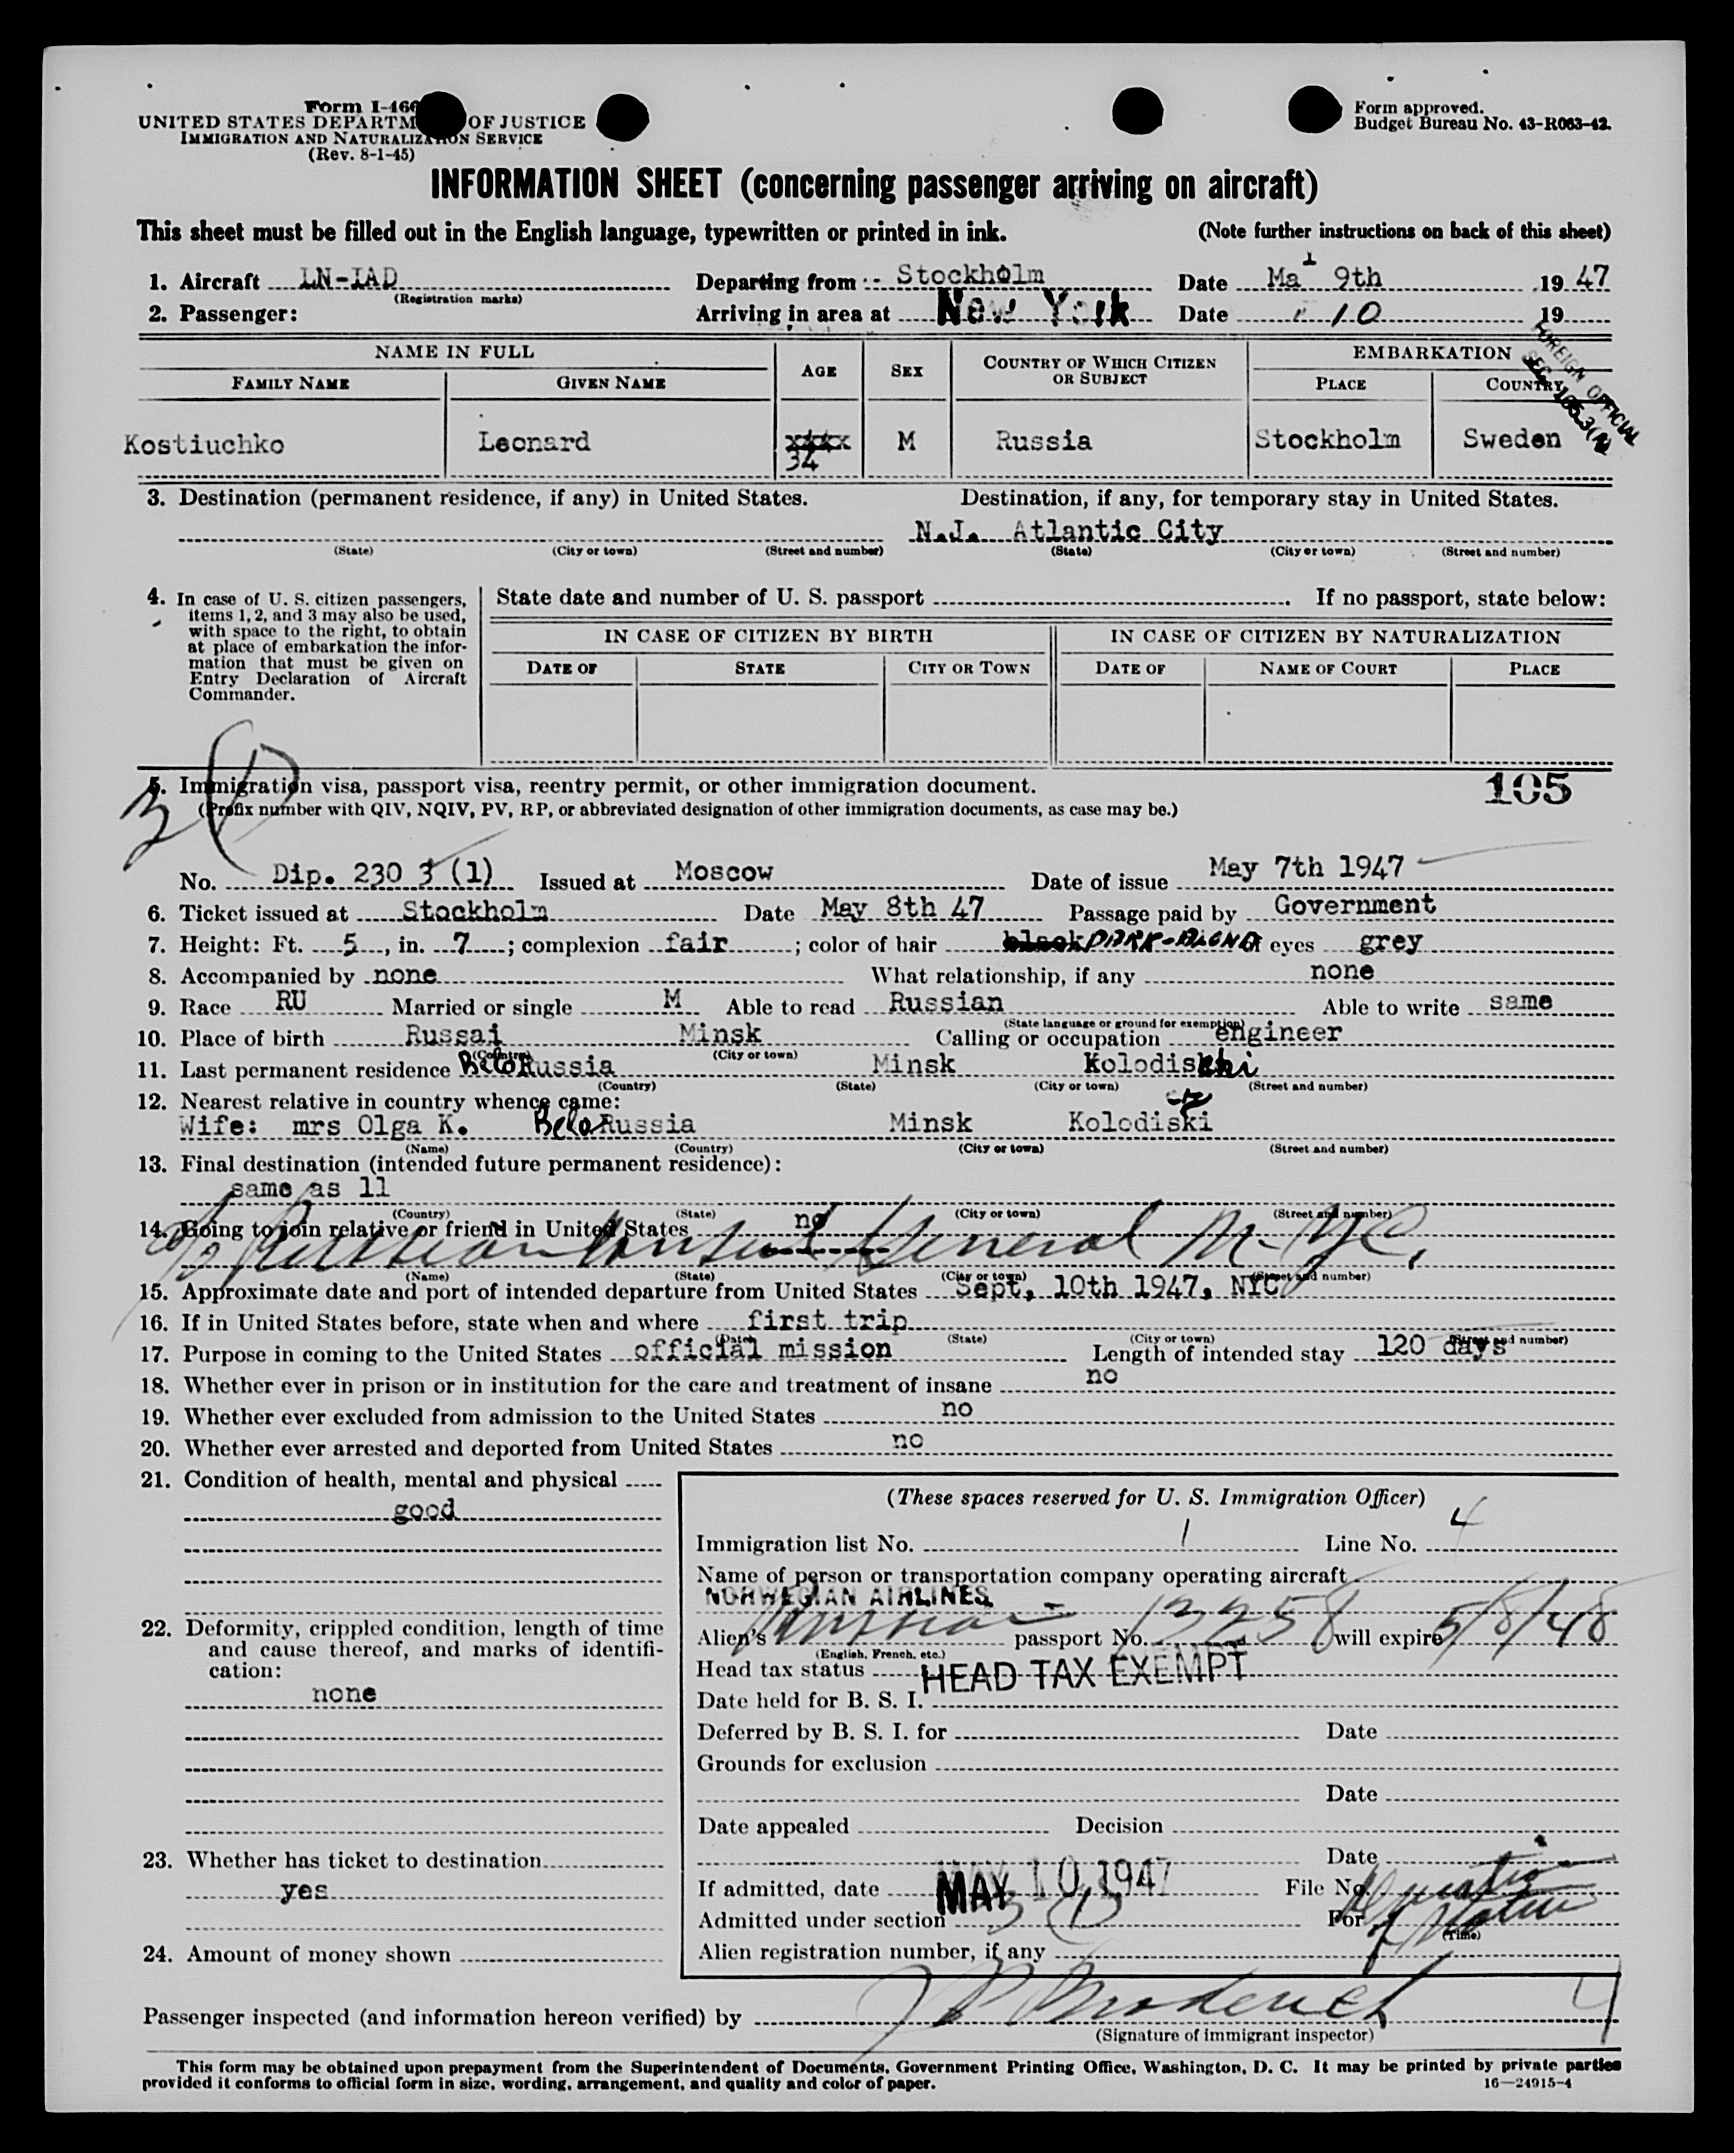 Form I-466
UNITED STATES DEPARTM OF JUSTICE
IMMIGRATION AND NATURALIZATION SERVICE
(Rev. 8-1-45)
Form approved.
Budget Bureau No. 43-R063-42.
INFORMATION SHEET (concerning passenger arriving on aircraft)
This sheet must be filled out in the English language, typewritten or printed in ink. (Note further instructions on back of this sheet)
1. Aircraft LN-IAD Departing from Stockholm Date Ma 9th 1947
(Registration marks)
2. Passenger: Arriving in area at New York Date " 10 19
FOREIGN OFFICIAL
NAME IN FULL AGE SEX COUNTRY OF WHICH CITIZEN OR SUBJECT EMBARKATION
FAMILY NAME GIVEN NAME PLACE COUNTRY
Kostiuchko Leonard 34 M Russia Stockholm Sweden
3. Destination (permanent residence, if any) in United States. Destination, if any, for temporary stay in United States.
N.J. Atlantic City
(State) (City or town) (Street and number) (State) (City or town) (Street and number)
4. In case of U. S. citizen passengers, items 1, 2, and 3 may also be used, with space to the right, to obtain at place of embarkation the information that must be given on Entry Declaration of Aircraft Commander.
State date and number of U. S. passport . If no passport, state below:
IN CASE OF CITIZEN BY BIRTH IN CASE OF CITIZEN BY NATURALIZATION
DATE OF STATE CITY OR TOWN DATE OF NAME OF COURT PLACE
3(1)
5. Immigration visa, passport visa, reentry permit, or other immigration document. 105
(Prefix number with QIV, NQIV, PV, RP, or abbreviated designation of other immigration documents, as case may be.)
No. Dip. 230 3 (1) Issued at Moscow Date of issue May 7th 1947
6. Ticket issued at Stockholm Date May 8th 47 Passage paid by Government
7. Height: Ft. 5, in. 7; complexion fair; color of hair black DARK-BLOND eyes grey
8. Accompanied by none What relationship, if any none
9. Race RU Married or single M Able to read Russian Able to write same
(State language or ground for exemption)
10. Place of birth Russai Minsk Calling or occupation engineer
(Country) (City or town)
11. Last permanent residence BeloRussia Minsk Kolodischi
(Country) (State) (City or town) (Street and number)
12. Nearest relative in country whence came:
Wife: mrs Olga K. BeloRussia Minsk Kolodiski
(Name) (Country) (City or town) (Street and number)
13. Final destination (intended future permanent residence):
same as 11
(Country) (State) (City or town) (Street and number)
14. Going to join relative or friend in United States no
c/o Russian Consul General N.Y.C.
(Name) (State) (City or town) (Street and number)
15. Approximate date and port of intended departure from United States Sept, 10th 1947, NYC
16. If in United States before, state when and where first trip
(Date) (State) (City or town) (Street and number)
17. Purpose in coming to the United States official mission Length of intended stay 120 days
18. Whether ever in prison or in institution for the care and treatment of insane no
19. Whether ever excluded from admission to the United States no
20. Whether ever arrested and deported from United States no
21. Condition of health, mental and physical
good
22. Deformity, crippled condition, length of time and cause thereof, and marks of identification:
none
23. Whether has ticket to destination
yes
24. Amount of money shown
(These spaces reserved for U. S. Immigration Officer)
Immigration list No. 1 Line No. 4
Name of person or transportation company operating aircraft
NORWEGIAN AIRLINES
Alien's Russian passport No. 13258 will expire 5/8/48
(English, French, etc.)
Head tax status HEAD TAX EXEMPT
Date held for B. S. I.
Deferred by B. S. I. for Date
Grounds for exclusion
Date
Date appealed Decision
Date
If admitted, date MAY 10 1947 File No.
Admitted under section 3(1) For Duration of Status
(Time)
Alien registration number, if any
Passenger inspected (and information hereon verified) by
(Signature of immigrant inspector)
This form may be obtained upon prepayment from the Superintendent of Documents, Government Printing Office, Washington, D. C. It may be printed by private parties
provided it conforms to official form in size, wording, arrangement, and quality and color of paper. 16—24915-4